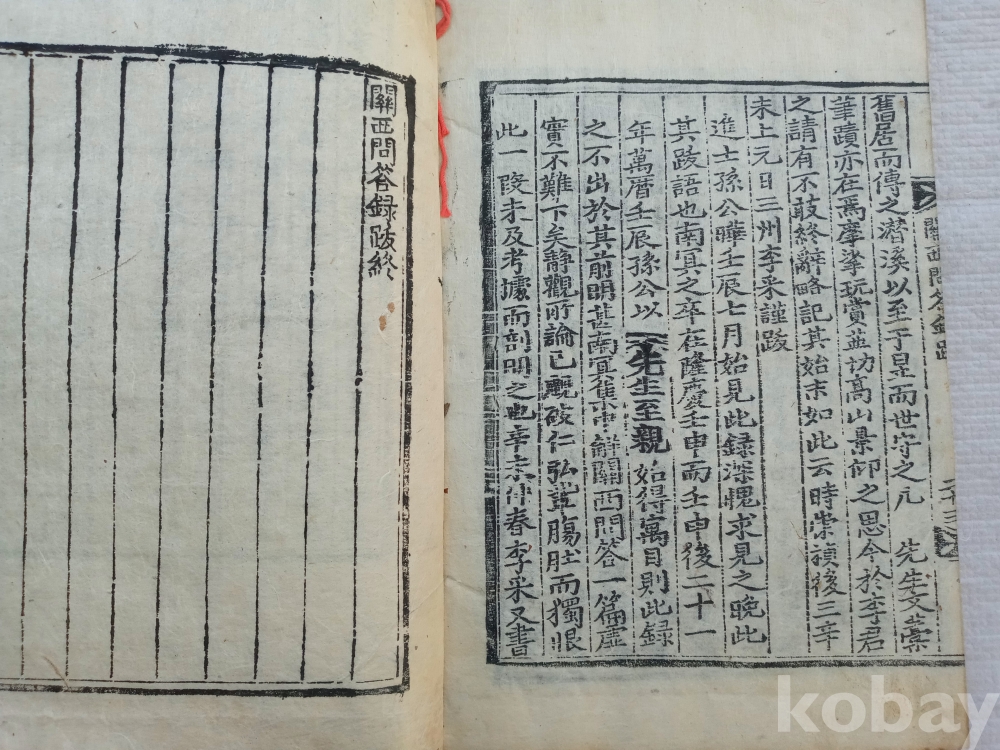 舊居而傳之潛溪以至于是而世守之凡 先生文藁
筆蹟亦在焉摩挲玩賞益切高山景仰之思今於李君
之請有不敢終辭略記其始末如此云時崇禎後三辛
未上元日三州李采謹跋
進士孫公曄壬辰七月始見此錄深愧求見之晚此
其跋語也南冥之卒在隆慶壬申而壬申後二十一
年萬曆壬辰孫公以 先生至親 始得寓目則此錄
之不出於其前明甚南冥集中解關西問答一篇虛
實不難下矣靜觀所論已覷破仁弘輩膓肚而獨恨
此一段未及考據而剖明之也辛未仲春李采又書
關西問答錄跋
二十三
關西問答錄跋終
kobay